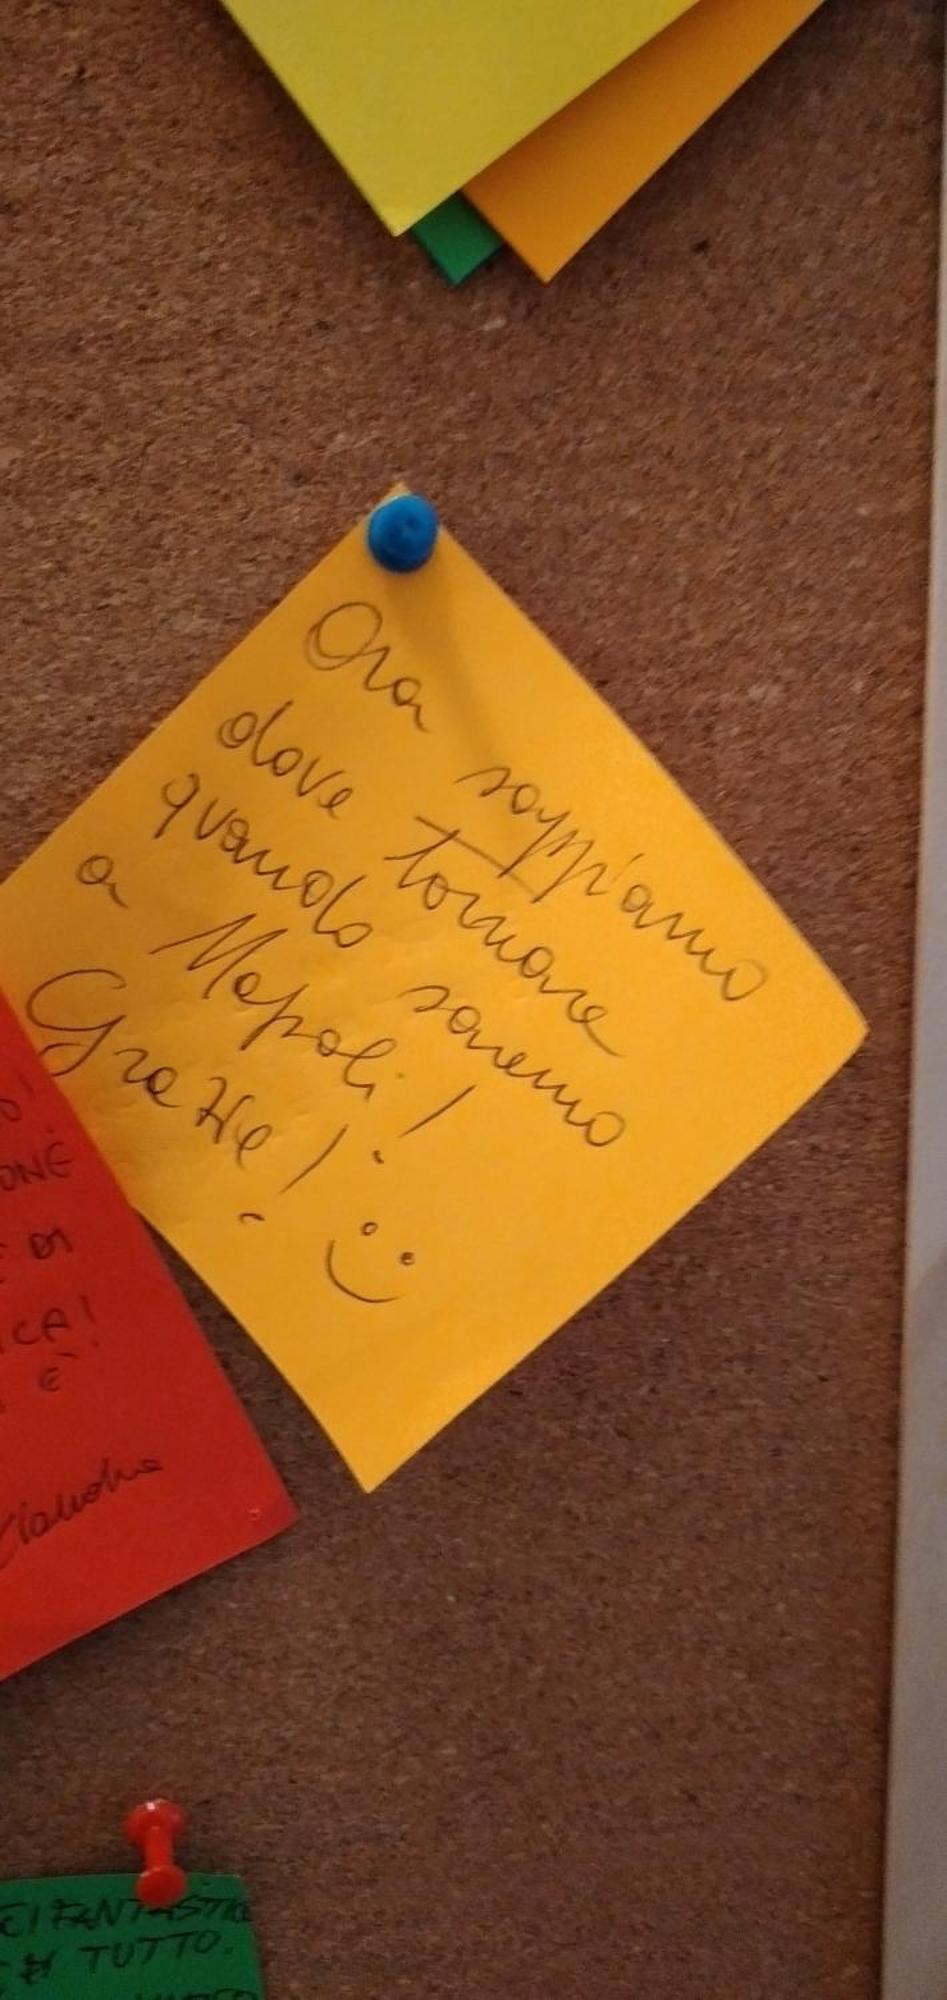 Ora sappiamo
dove tornare
quando saremo
a Napoli!
Grazie!
ONE
E DI
ICA!
È
Claudia
FANTASTIC
TUTTO.